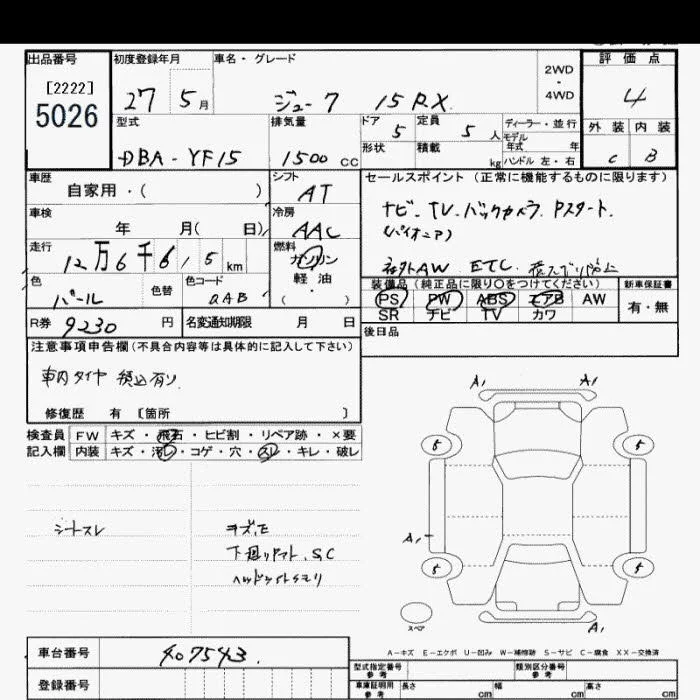 出品番号 初度登録年月 車名・グレード 評価点
[2222]
5026
27 5月 ジューク 15RX 2WD・4WD 4
型式 排気量 ドア 5 定員 5人 ディーラー・並行 外装 内装
モデル年式 年
DBA-YF15 1500cc 形状 積載 kg ハンドル 左・右 C B
車歴 シフト セールスポイント(正常に機能するものに限ります)
自家用・( ) AT
ナビ、TV、バックカメラ、Pスタート、
車検 冷房
(パイオニア)
年 月( 日) AAC
走行 燃料
12万6千615km ガソリン
社外AW ETC
軽油
色 色替 色コード ・
パール QAB ( )
装備品(純正品に限り○をつけてください) 新車保証書
PS PW ABS エアB AW 有・無
SR ナビ TV カワ
R券 9230円 名変通知期限 月 日
後日品
注意事項申告欄(不具合内容等は具体的に記入して下さい)
車内タイヤ積込有リ
修復歴 有 〔箇所 〕
検査員 FW キズ・飛石・ヒビ割・リペア跡・×要
記入欄 内装 キズ・汚レ・コゲ・穴・スレ・キレ・破レ
シートスレ
キズ、E
下廻りサビ、S,C
ヘッドライトクモリ
A1 A1
5 5
A1
5 5
スペア
A1
A-キズ E-エクボ U-凹み W-補修跡 S-サビ C-腐食 XX-交換済
車台番号 407543
登録番号
型式指定番号 参考 類別区分番号 参考
車庫証明用 参考 長さ cm 幅 cm 高さ cm